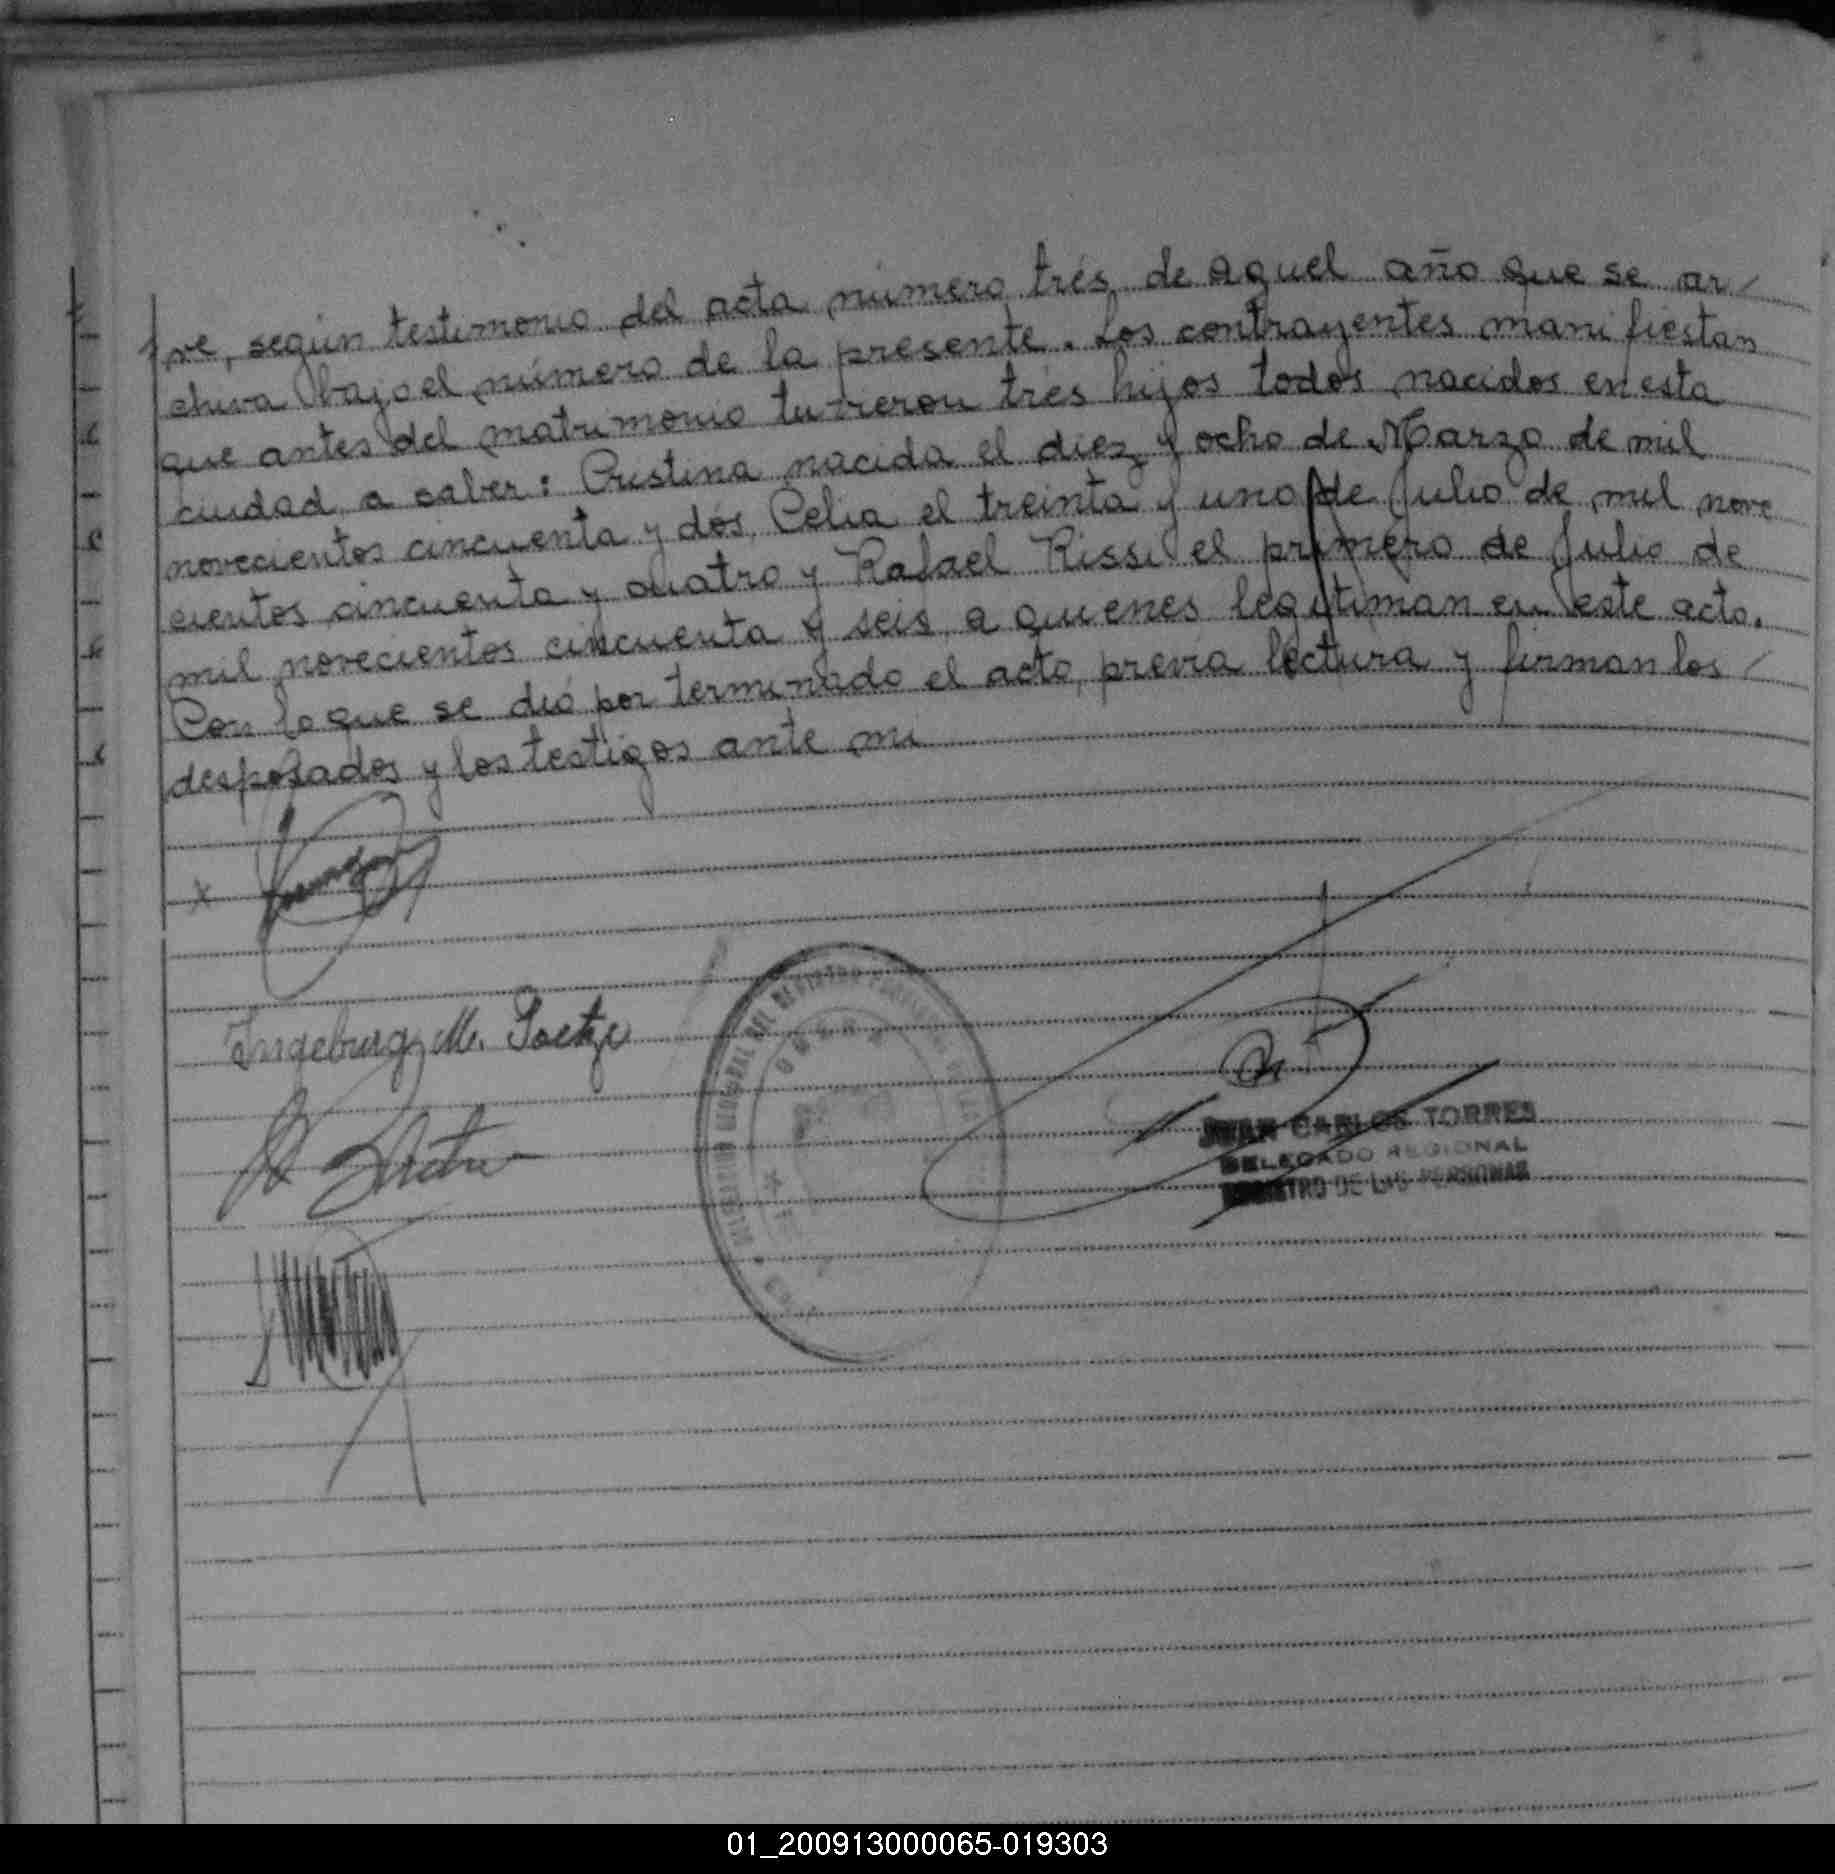 ve, según testimonio del acta número trés de aquel año que se ar/
chiva bajo el número de la presente. Los contrayentes manifiestan
que antes del matrimonio tuvieron tres hijos todos nacidos en esta
ciudad a saber: Cristina nacida el diez y ocho de Marzo de mil
novecientos cincuenta y dós, Celia el treinta y uno de Julio de mil nove
cientos cincuenta y cuatro y Rafael Rissi el primero de Julio de
mil novecientos cincuenta y seis a quienes legitiman en este acto.
Con lo que se dió por terminado el acto, previa lectura y firman los /
desposados y los testigos ante mi
x
Ingeburg M.
JUAN CARLOS TORRES
DELEGADO REGIONAL
REGISTRO DE LAS PERSONAS
01_200913000065-019303